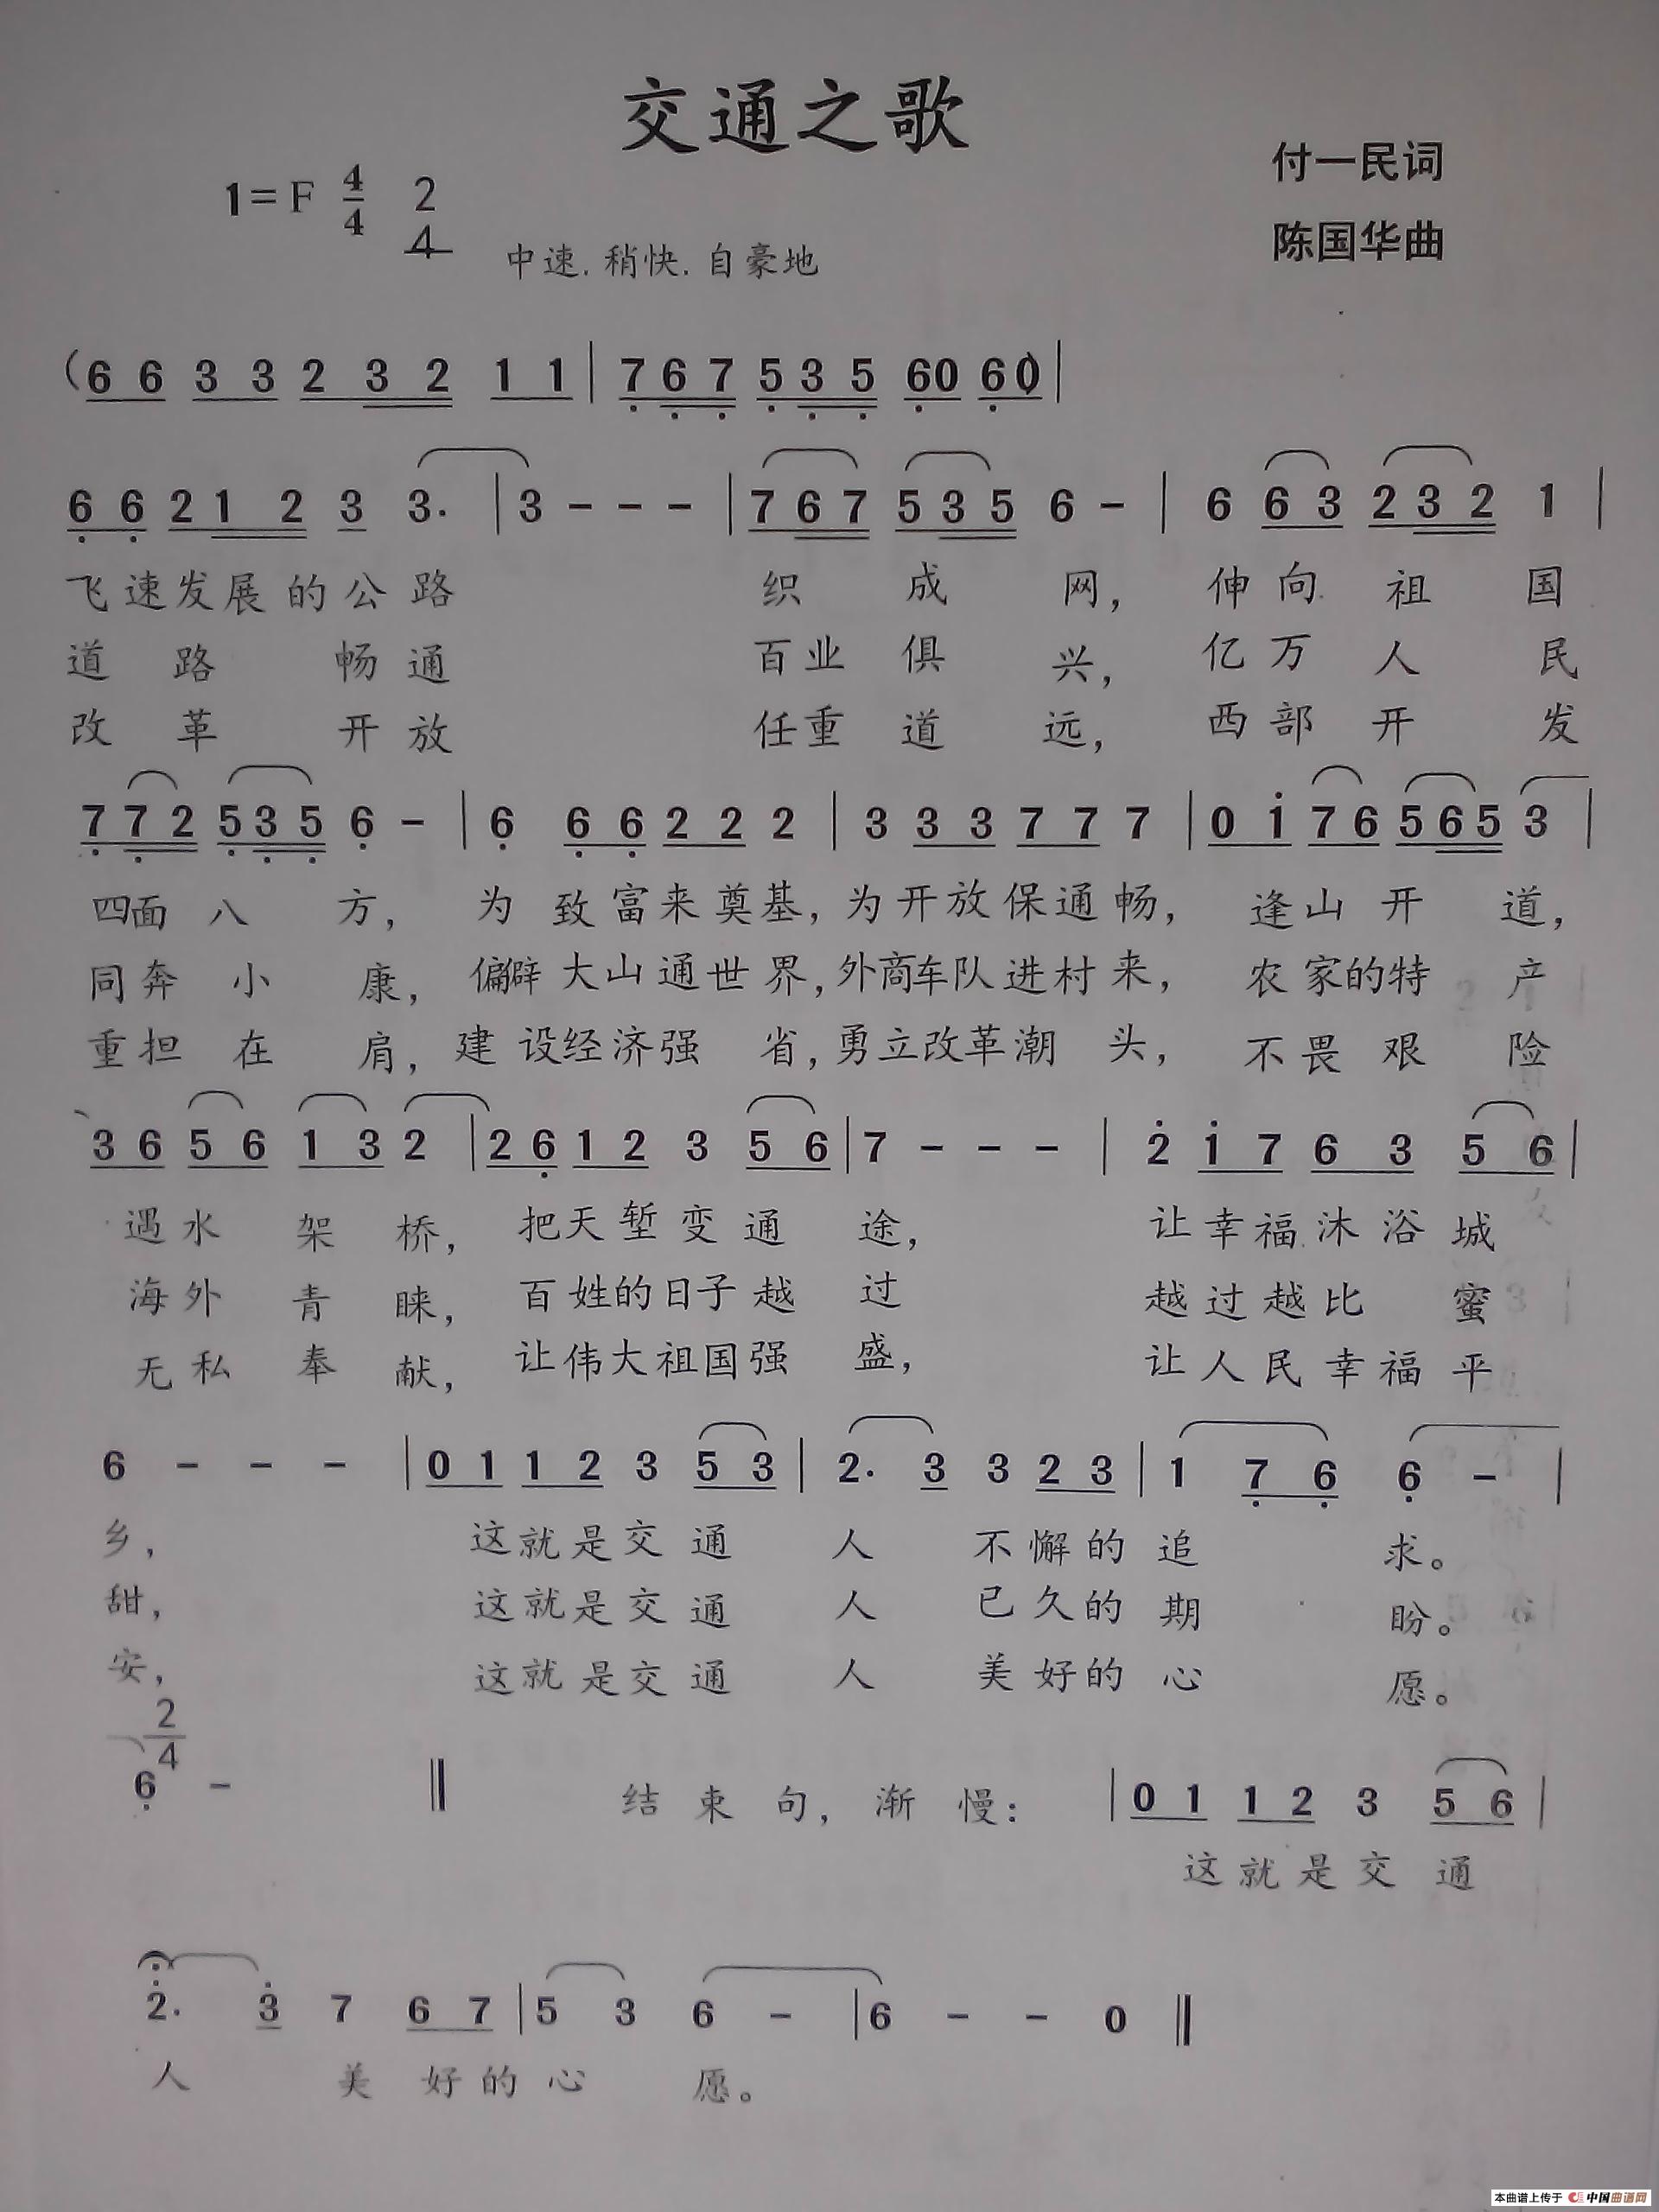 交通之歌
付一民词
1=F 4/4 2/4
陈国华曲
中速.稍快.自豪地
(6 6 3 3 2 3 2 1 1 | 7 6 7 5 3 5 60 60) |
6 6 2 1 2 3 3. | 3 - - - | 7 6 7 5 3 5 6 - | 6 6 3 2 3 2 1 |
飞速发展的公路 织成网, 伸向祖国
道路畅通 百业俱兴, 亿万人民
改革开放 任重道远, 西部开发
7 7 2 5 3 5 6 - | 6 6 6 2 2 2 | 3 3 3 7 7 7 | 0 1 7 6 5 6 5 3 |
四面八方, 为致富来奠基, 为开放保通畅, 逢山开道,
同奔小康, 偏僻大山通世界, 外商车队进村来, 农家的特产
重担在肩, 建设经济强省, 勇立改革潮头, 不畏艰险
3 6 5 6 1 3 2 | 2 6 1 2 3 5 6 | 7 - - - | 2 1 7 6 3 5 6 |
遇水架桥, 把天堑变通途, 让幸福沐浴城
海外青睐, 百姓的日子越过 越过越比蜜
无私奉献, 让伟大祖国强盛, 让人民幸福平
6 - - - | 0 1 1 2 3 5 3 | 2. 3 3 2 3 | 1 7 6 6 - |
乡, 这就是交通人不懈的追求。
甜, 这就是交通人已久的期盼。
安, 这就是交通人美好的心愿。
2/4
6 - ‖ 结束句, 渐慢: | 0 1 1 2 3 5 6 |
这就是交通
2. 3 7 6 7 | 5 3 6 - | 6 - - 0 ‖
人美好的心愿。
本曲谱上传于 中国曲谱网